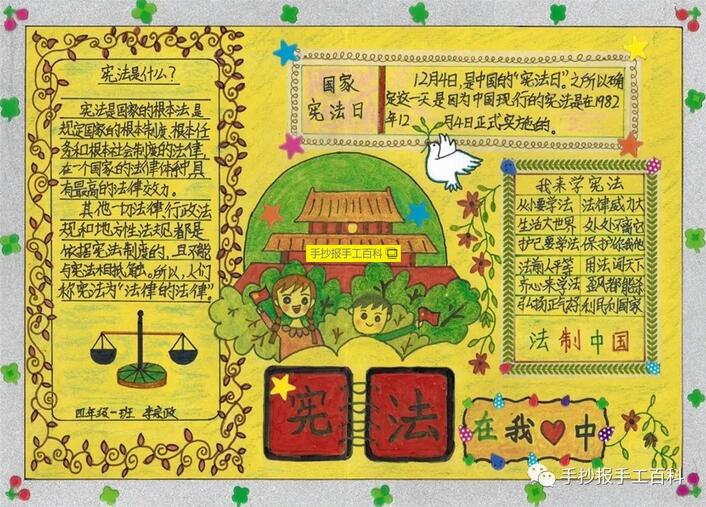 宪法是什么？
宪法是国家的根本法，是
规定国家的根本制度、根本任
务和根本社会制度的法律，
在一个国家的法律体制中具
有最高的法律效力。
其他一切法律行政法
规和地方性法规都是
依据宪法制度的，且不能
与宪法相抵触。所以，人们
称宪法为“法律的法律”
四年级一班
国家
宪法日
12月4日，是中国的“宪法日”。之所以确
定这一天，是因为中国现行的宪法是在1982
年12月4日正式实施的。
手抄报手工百科
我来学宪法
从小要学法 法律威力大
生活大世界 处处不离它
护己要学法 保护你我他
法前人平等 用法闯天下
齐心来学法 歪风都能杀
弘扬正气好 利民利国家
法制中国
宪法
在我中
手抄报手工百科